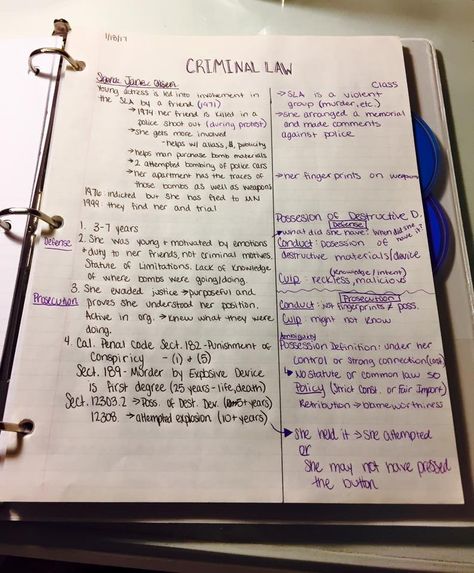 1/18/17
CRIMINAL LAW
Sara Jane Olsen
Young actress is led into involvement in
the SLA by a friend (1971)
→ 1974 her friend is killed in a
police shoot out (during protest)
→ she gets more involved
- helps w/ alias, $, publicity
→ helps man purchase bomb materials
→ 2 attempted bombing of police cars
→ her apartment has the traces of
those bombs as well as weapons
1976: indicted but she has fled to MN
1999: they find her and trial
1. 3-7 years
Defense
2. She was young + motivated by emotions
+ duty to her friends, not criminal motives.
Statute of Limitations. Lack of knowledge
of where bombs were going/doing.
Prosecution
3. She evaded justice → purposeful and
proves she understood her position.
Active in org. → knew what they were
doing.
4. Cal. Penal Code Sect. 182 - Punishment of
Conspiracy - (1) + (5)
Sect. 189 - Murder by Explosive Device
is first degree (25 years - life, death)
Sect. 12303.2 → Poss. of Dest. Dev. (5+ years)
12308. → attempted explosion (10+ years)
Class
→ SLA is a violent
group (murder, etc.)
→ she arranged a memorial
and made comments
against police
→ her fingerprints on weapons
Possession of Destructive D.
Defense
what did she have? When did she have it?
Conduct: possesion of
destructive materials/device
(knowledge/intent)
Culp: reckless, malicious
Prosecution
Conduct: just fingerprints ≠ poss.
Culp: might not know
Ambiguity
Possession Definition: under her
control or strong connection
→ No statute or common law so
Policy (Strict Const. or Fair Import)
Retribution → blameworthiness
→ she held it → she attempted
or
she may not have pressed
the button